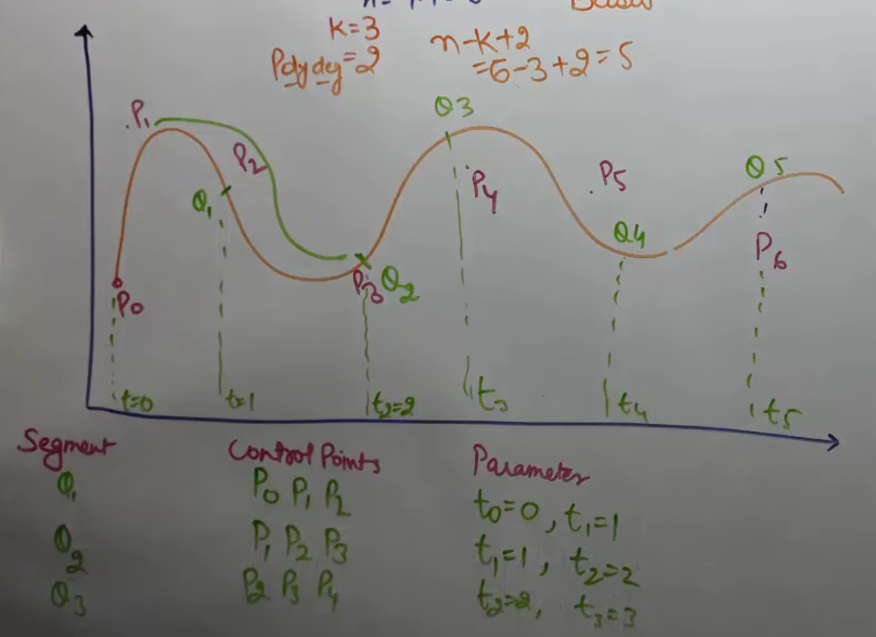 K=3
n-k+2
Polydeg=2
=6-3+2=5
Q3
.P1
P2
P4
.P5
Q5
Q1
Q4
P6
P0
P3 Q2
t=0 t=1 t2=2 t3 t4 t5
Segment Control Points Parameter
Q1 P0 P1 P2 t0=0, t1=1
Q2 P1 P2 P3 t1=1, t2=2
Q3 P2 P3 P4 t2=2, t3=3